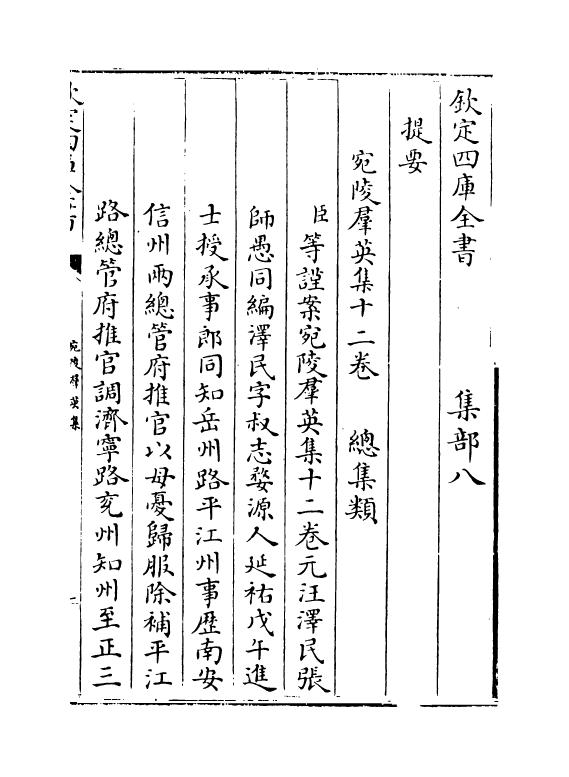 欽定四庫全書 集部八
提要
宛陵羣英集十二卷 總集類
臣等謹案宛陵羣英集十二卷元汪澤民張
師愚同編澤民字叔志婺源人延祐戊午進
士授承事郎同知岳州路平江州事歷南安
信州兩總管府推官以母憂歸服除補平江
路總管府推官調濟寧路兖州知州至正三
宛陵羣英集